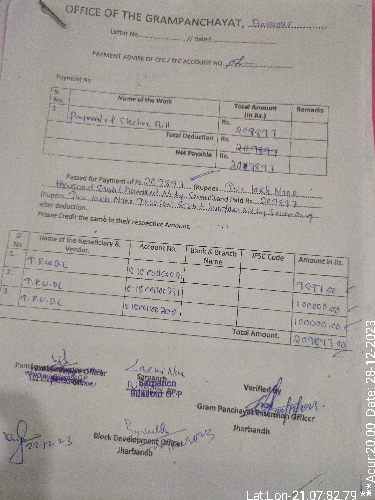 OFFICE OF THE GRAMPANCHAYAT,
Letter No. // dated
PAYMENT ADVISE OF CFC / SFC ACCOUNT NO.
Payment No
Sl No. Name of the Work Total Amount (in Rs.) Remarks
1 Payment of Electric Bill Rs. 209897
Total Deduction Rs. 209897
Net Payable Rs. 209897
Passed for Payment of Rs. 209897 (Rupees Two lakh Nine
thousand Eight hundred Ninty Seven) and Paid Rs. 209897
(Rupees Two lakh Nine Thousand Eight hundred Ninty Seven Only
after deduction.
Please Credit the same in their respective Amount.
Sl No Name of the Beneficiary & Vendor. Account No. Bank & Branch Name IFSC Code Amount in Rs.
1. T.P.W.D.L 9897.00
2. T.P.W.D.L 100000.00
3 T.P.W.D.L 100000.00
Total Amount. 209897.00
Panchayat Executive Officer
Sarpanch
Sarpanch
Verified By
Gram Panchayat Extension Officer
Jharbandh
22.12.23
Block Development Officer
Jharbandh
Lat:Lon-21.07:82.79
***Acur:20.00, Date:28-12-2023